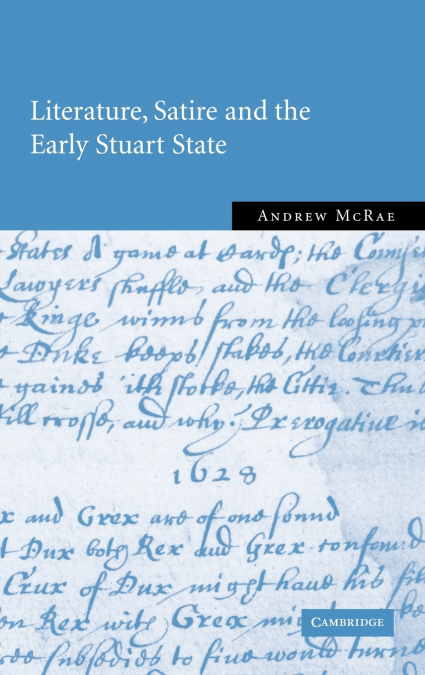 Literature, Satire and the
Early Stuart State
ANDREW MCRAE
States A game at Cards; the
Lawyers shuffle, and the
Kinge winns from the loosing
Duke keeps stakes, the Courtier
gaines ith stocke, the Cittie.
ill crosse, and why? Prerogative
1628
x and Grex are of one sound
t Dux both Rex and Grex
Crux of Dux might have his
en Rex with Grex
ee subsedies to five would turne
CAMBRIDGE